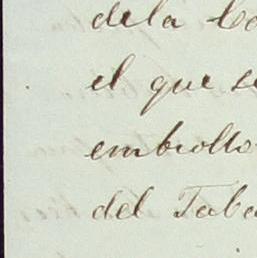 dela Co
el que se
embrollo
del Taba